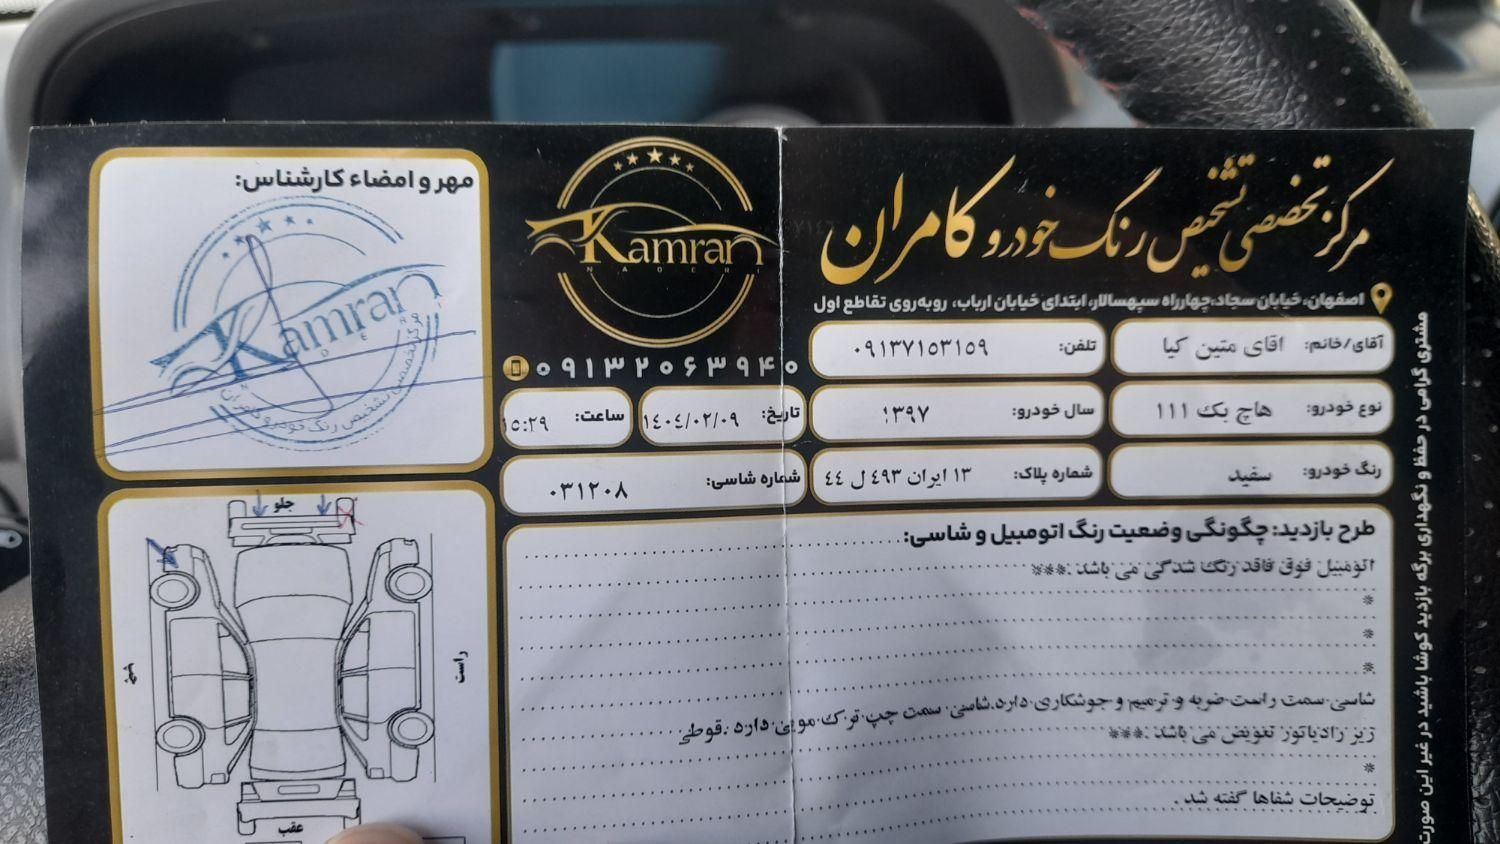 مرکز تخصصی تشخیص رنگ خودرو کامران
اصفهان، خیابان سجاد، چهارراه سپهسالار، ابتدای خیابان ارباب، روبه‌روی تقاطع اول
Kamran
NADERI
۰۹۱۳۲۰۶۳۹۴۰
آقای/خانم: اقای متین کیا
تلفن: ۰۹۱۳۷۱۵۳۱۵۹
نوع خودرو: هاچ بک ۱۱۱
سال خودرو: ۱۳۹۷
تاریخ: ۱۴۰۴/۰۲/۰۹
ساعت: ۱۵:۲۹
رنگ خودرو: سفید
شماره پلاک: ۱۳ ایران ۴۹۳ ل ۴۴
شماره شاسی: ۰۳۱۲۰۸
طرح بازدید: چگونگی وضعیت رنگ اتومبیل و شاسی:
اتومبیل فوق فاقد رنگ شدگی می باشد .***
*
*
*
شاسی سمت راست ضربه و ترمیم و جوشکاری دارد.شاسی سمت چپ ترک مویی دارد .قوطی
زیر رادیاتور تعویض می باشد .***
*
توضیحات شفاها گفته شد .
مهر و امضاء کارشناس:
Kamran
NADERI
مرکز تخصصی تشخیص رنگ خودرو کامران
جلو
راست
چپ
عقب
مشتری گرامی در حفظ و نگهداری برگه بازدید کوشا باشید در غیر این صورت